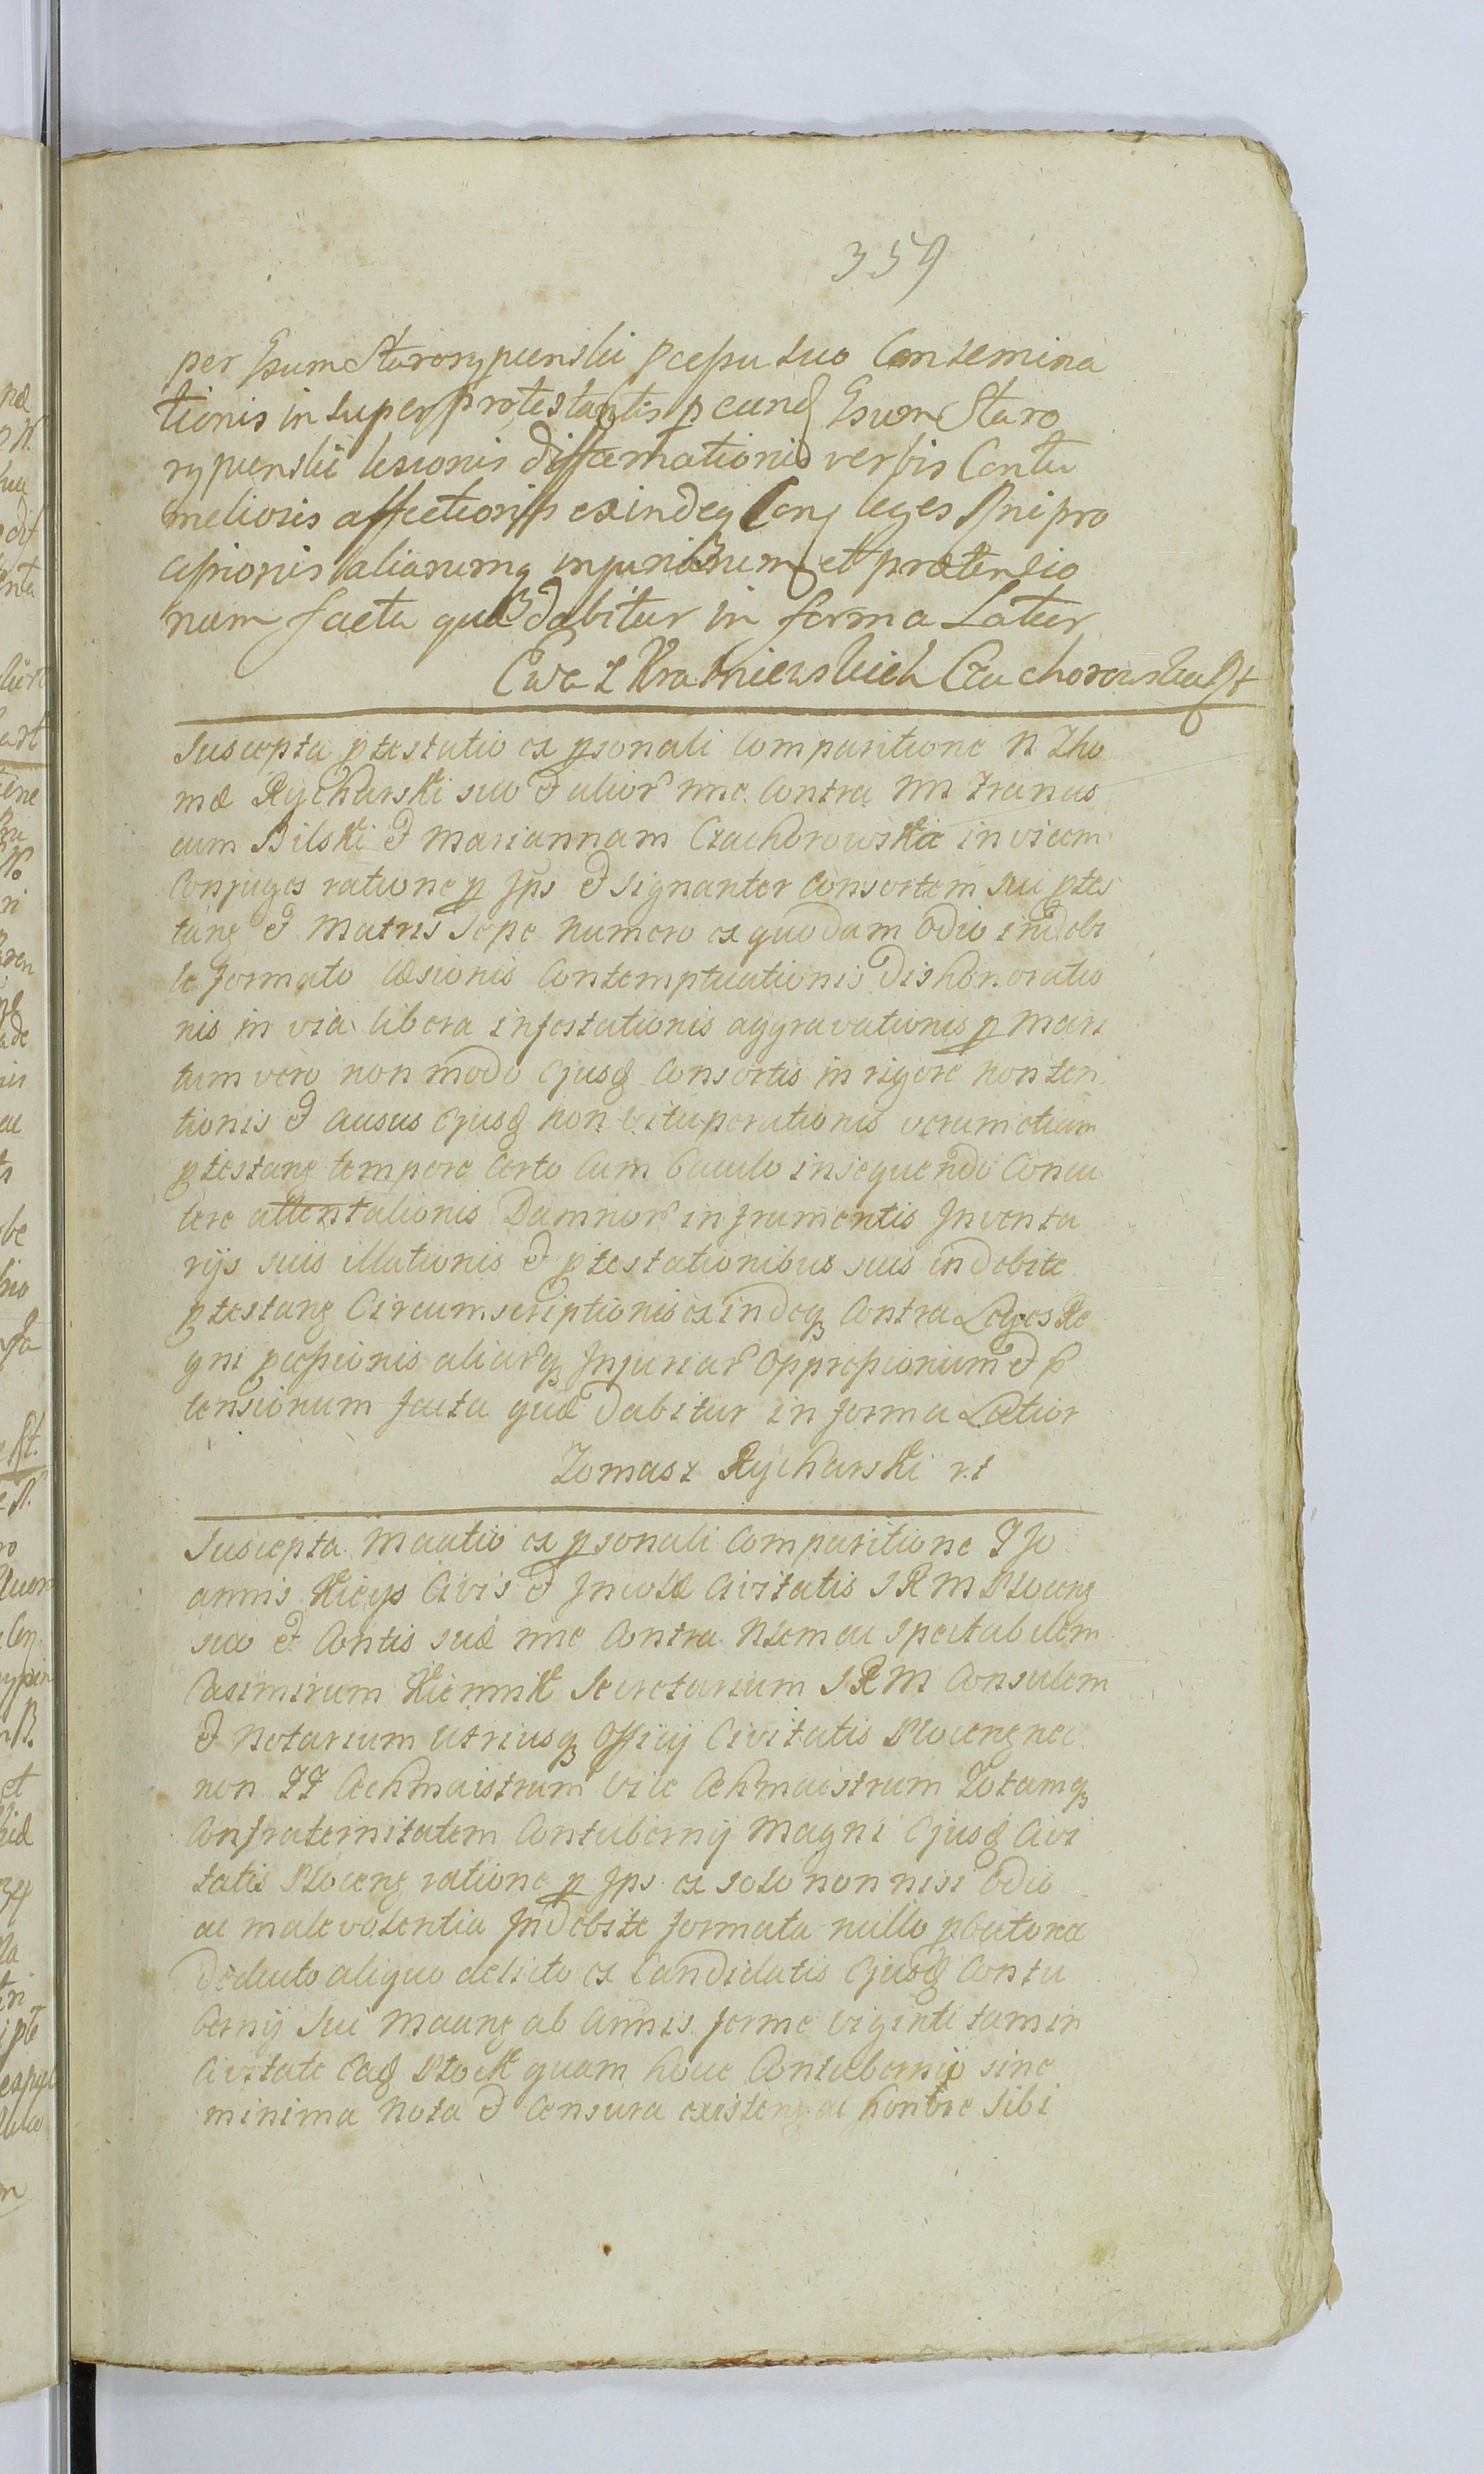 359
per Gsum Starorypienski pcessu suo Contemina
tionis in super protestantis p eund Gsum Staro
rypienski lesionis diffamationis verbis Contu
meliosis affectionis exindeq Con leges Rni pro
cessionis aliarumq injuriarum et prætensio
num facta quæ dabitur in forma Latior
Ewa z Kraśniewskich Czachorowska
Suscepta ptestatio ex psonali Comparitione N Tho
mæ Rycharski suo et alior nne Contra NN Francis
cum Bilski et Mariannam Czachorowska invicem
Conjuges ratione p Ips et signanter Consortem sui ptes
tang et Matris Sepe numero ex quodam Odio indebi
te formato Læsionis Contemptuationis Dishonoratio
nis in via libera infestationis aggravationis p Mari
tum vero non modo Ejusd Consortis in rigore non ten
tionis et ausus Ejusd non vituperationis verum etiam
ptestang tempore Certo Cum Baculo insequendo Concu
tere attentationis Damnor in frumentis Inventa
rijs suis illationis et ptestationibus suis indebite
ptestang Circumscriptionis exindeq Contra Leges Re
gni pcessionis aliarq Injuriar Oppressionum et p
tensionum facta quæ Dabitur in forma Lætior
Tomasz Rycharski
Suscepta Maatio ex psonali Comparitione F Jo
annis Kicys Civis et Incolæ Civitatis S R M Ploceng
suo et Contis suæ nne Contra Nlem ac Spectabilem
Casimirum Kiemnik Secretarium S R M Consulem
et Notarium Utriusq Officij Civitatis Ploceng nec
non FF Cechmaistrum Vice Cehmaistrum Totamq
Confraternitatem Contubernij Magni Ejusd Civi
tatis Ploceng ratione p Ips ex solo non nisi Odio
ac malevolentia Indebite formata nullo
Deducto aliquo delicto ex Candidatis Ejusd Contu
bernij Sui Maang ab Annis ferme viginti tam in
Civitate Ead Plock quam hocce Contubernio sine
minima Nota et Censura existeng ac honore Sibi